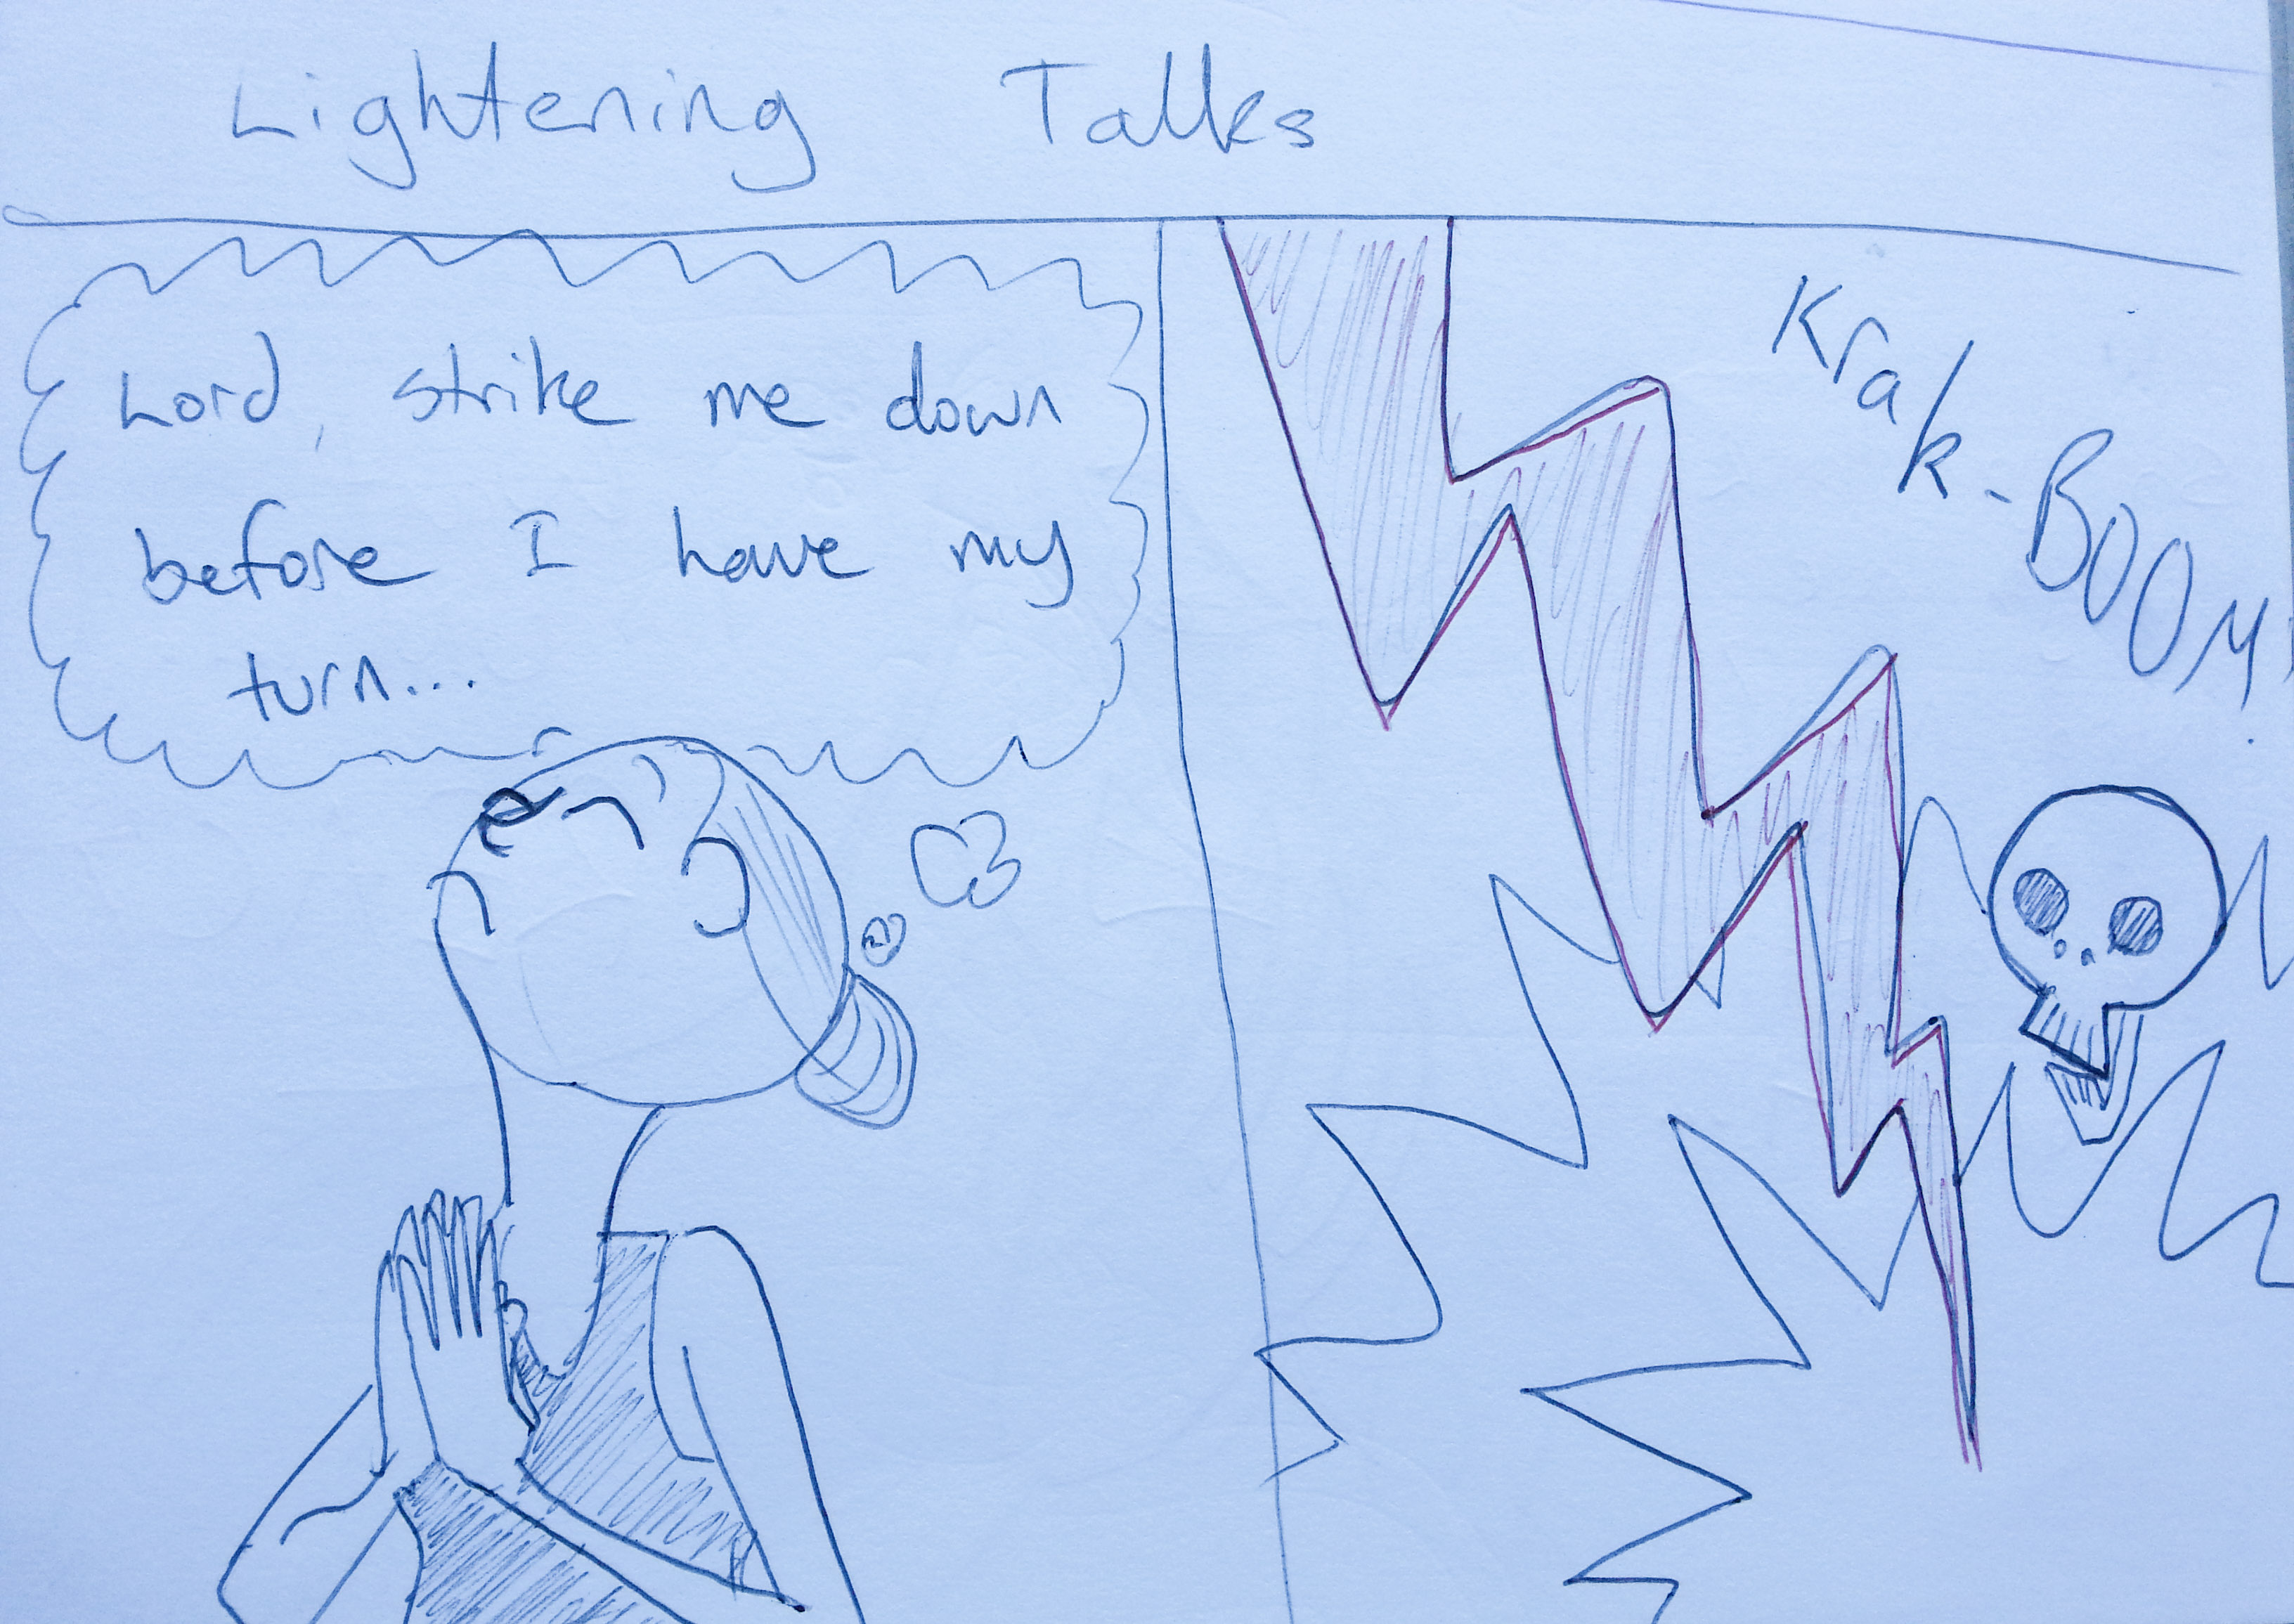 Lightening Talks
Lord, strike me down
before I have my
turn...
Krak-BOOM!